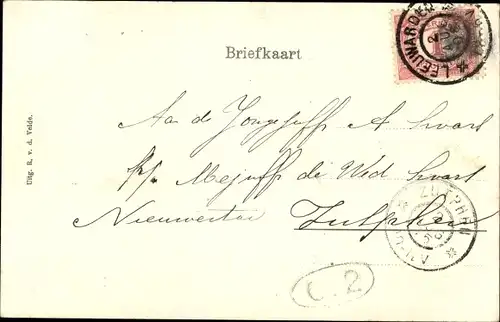 Briefkaart
LEEUWARDEN
Uitg. R. v. d. Velde.
Aan de Jongejuffr A Swart
p/a Mejuffr de Wed Swart
Nieuwertol Zutphen
ZUTPHEN
C.2